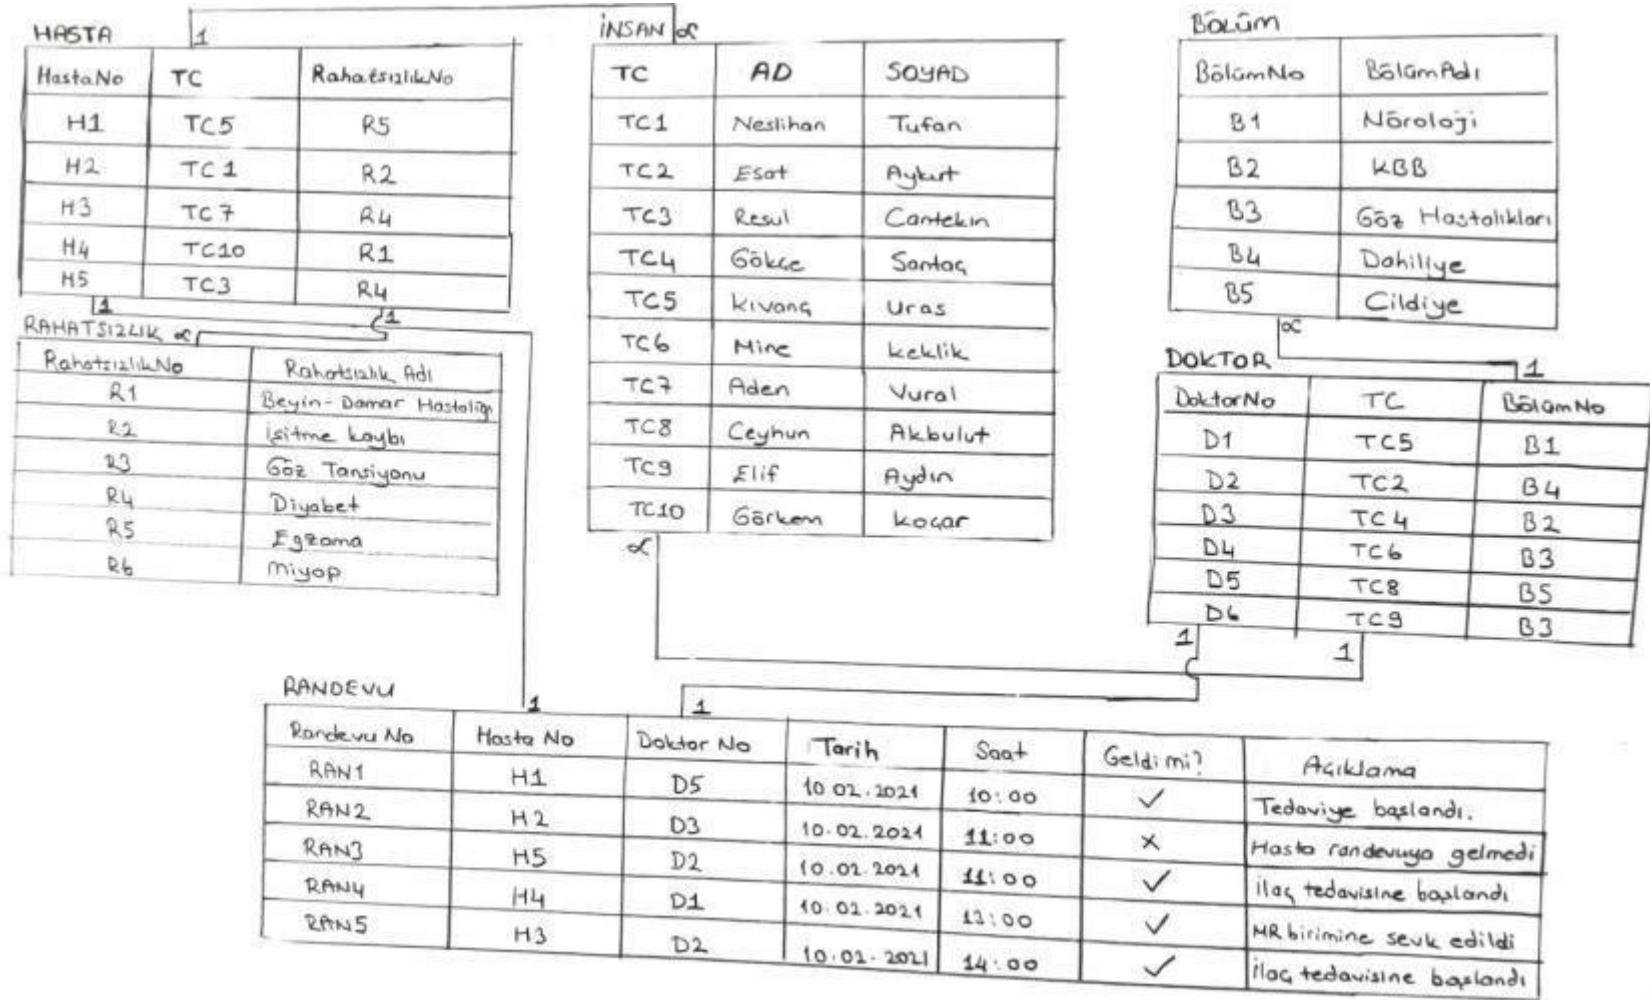 HASTA
1
HastaNo TC RahatsızlıkNo
H1 TC5 R5
H2 TC1 R2
H3 TC7 R4
H4 TC10 R1
H5 TC3 R4
1 1
RAHATSIZLIK ∝
RahatsızlıkNo Rahatsızlık Adı
R1 Beyin-Damar Hastalığı
R2 işitme kaybı
R3 Göz Tansiyonu
R4 Diyabet
R5 Egzama
R6 miyop
İNSAN ∝
TC AD SOYAD
TC1 Neslihan Tufan
TC2 Esat Aykut
TC3 Resul Cantekin
TC4 Gökçe Santaç
TC5 Kıvanç Uras
TC6 Mine Keklik
TC7 Aden Vural
TC8 Ceyhun Akbulut
TC9 Elif Aydın
TC10 Görkem Koçar
∝
BÖLÜM
BölümNo BölümAdı
B1 Nöroloji
B2 KBB
B3 Göz Hastalıkları
B4 Dahiliye
B5 Cildiye
∝
DOKTOR 1
DoktorNo TC BölümNo
D1 TC5 B1
D2 TC2 B4
D3 TC4 B2
D4 TC6 B3
D5 TC8 B5
D6 TC9 B3
1 1
RANDEVU
1 1
Randevu No Hasta No Doktor No Tarih Saat Geldi mi? Açıklama
RAN1 H1 D5 10.02.2021 10:00 ✓ Tedaviye başlandı.
RAN2 H2 D3 10.02.2021 11:00 × Hasta randevuya gelmedi
RAN3 H5 D2 10.02.2021 11:00 ✓ ilaç tedavisine başlandı
RAN4 H4 D1 10.02.2021 13:00 ✓ MR birimine sevk edildi
RAN5 H3 D2 10.02.2021 14:00 ✓ İlaç tedavisine başlandı